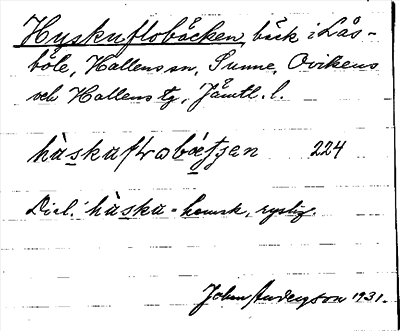 Hyskuflobäcken, bäck i Lås-
böle, Hallens sn, Sunne, Ovikens
och Hallens tg, Jämtl. l.
hàskaflωbǽtʃen 224
Dial. hàska = hemsk, rystig.
John Andersson 1931.